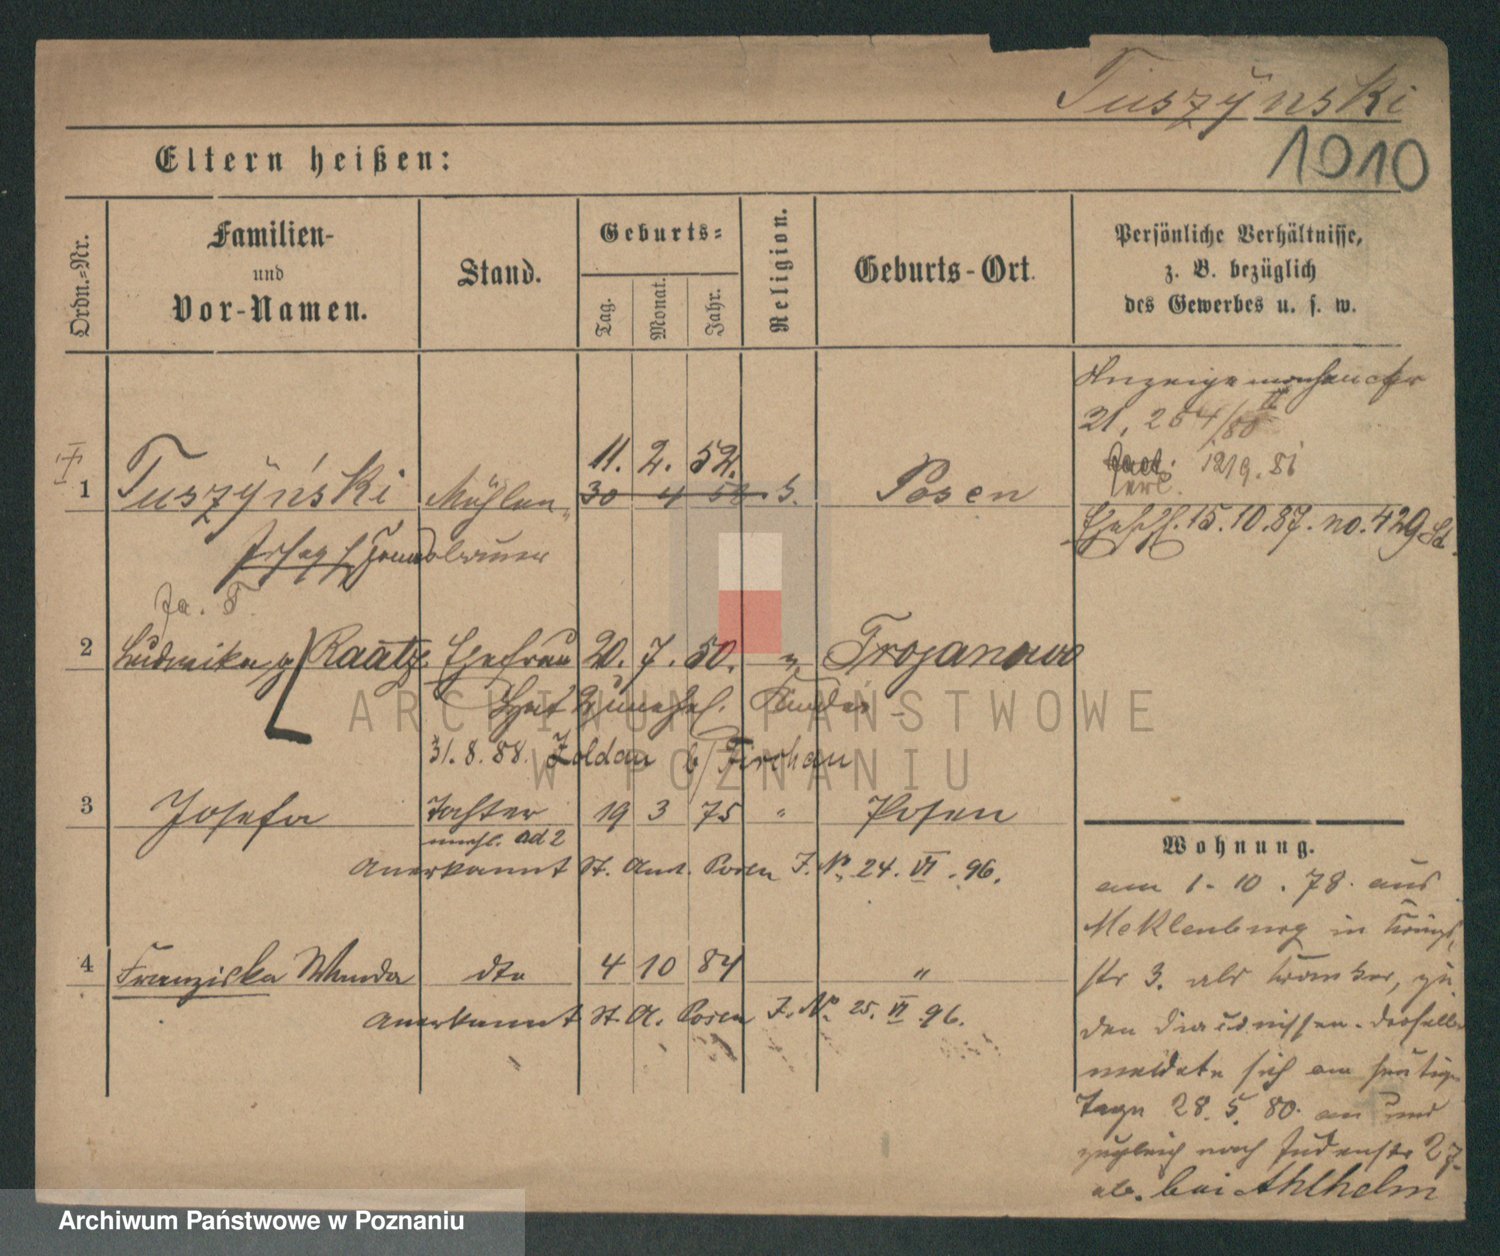 Tuszÿnski
1010
Eltern heißen:
Ordn.-Nr.
Familien-
und
Vor-Namen.
Stand.
Geburts-
Tag.
Monat.
Jahr.
Religion.
Geburts-Ort.
Persönliche Verhältnisse,
z. B. bezüglich
des Gewerbes u. s. w.
Anzeige
21, 264/80
1219. 81
11. 2. 52.
1 Tuszÿński Mühlen- 30 4 Posen
15. 10. 87. no. 429
Josef
2 Ludwika g Raatz. Ehefrau 20. 7. 50. Trojanowo
Kinder
31. 8. 88. Zoldau b/ Firchau
3 Josefa Tochter 19 3 75 " Posen
unehl. ad 2
Anerkannt St. Amt. Posen J. No. 24. VI. 96.
4 Franziska Wanda dto 4 10 84 "
Anerkannt St. A. Posen J. No. 25. VI 96.
Wohnung.
am 1. 10. 78. aus
Meklenburg in Königs
str 3. als Kranker, zu
den
meldete sich am heutigen
Tage 28. 5. 80. an und
zugleich nach Judenstr 27.
ab. bei Ahlhelm
ARCHIWUM PAŃSTWOWE
W POZNANIU
Archiwum Państwowe w Poznaniu